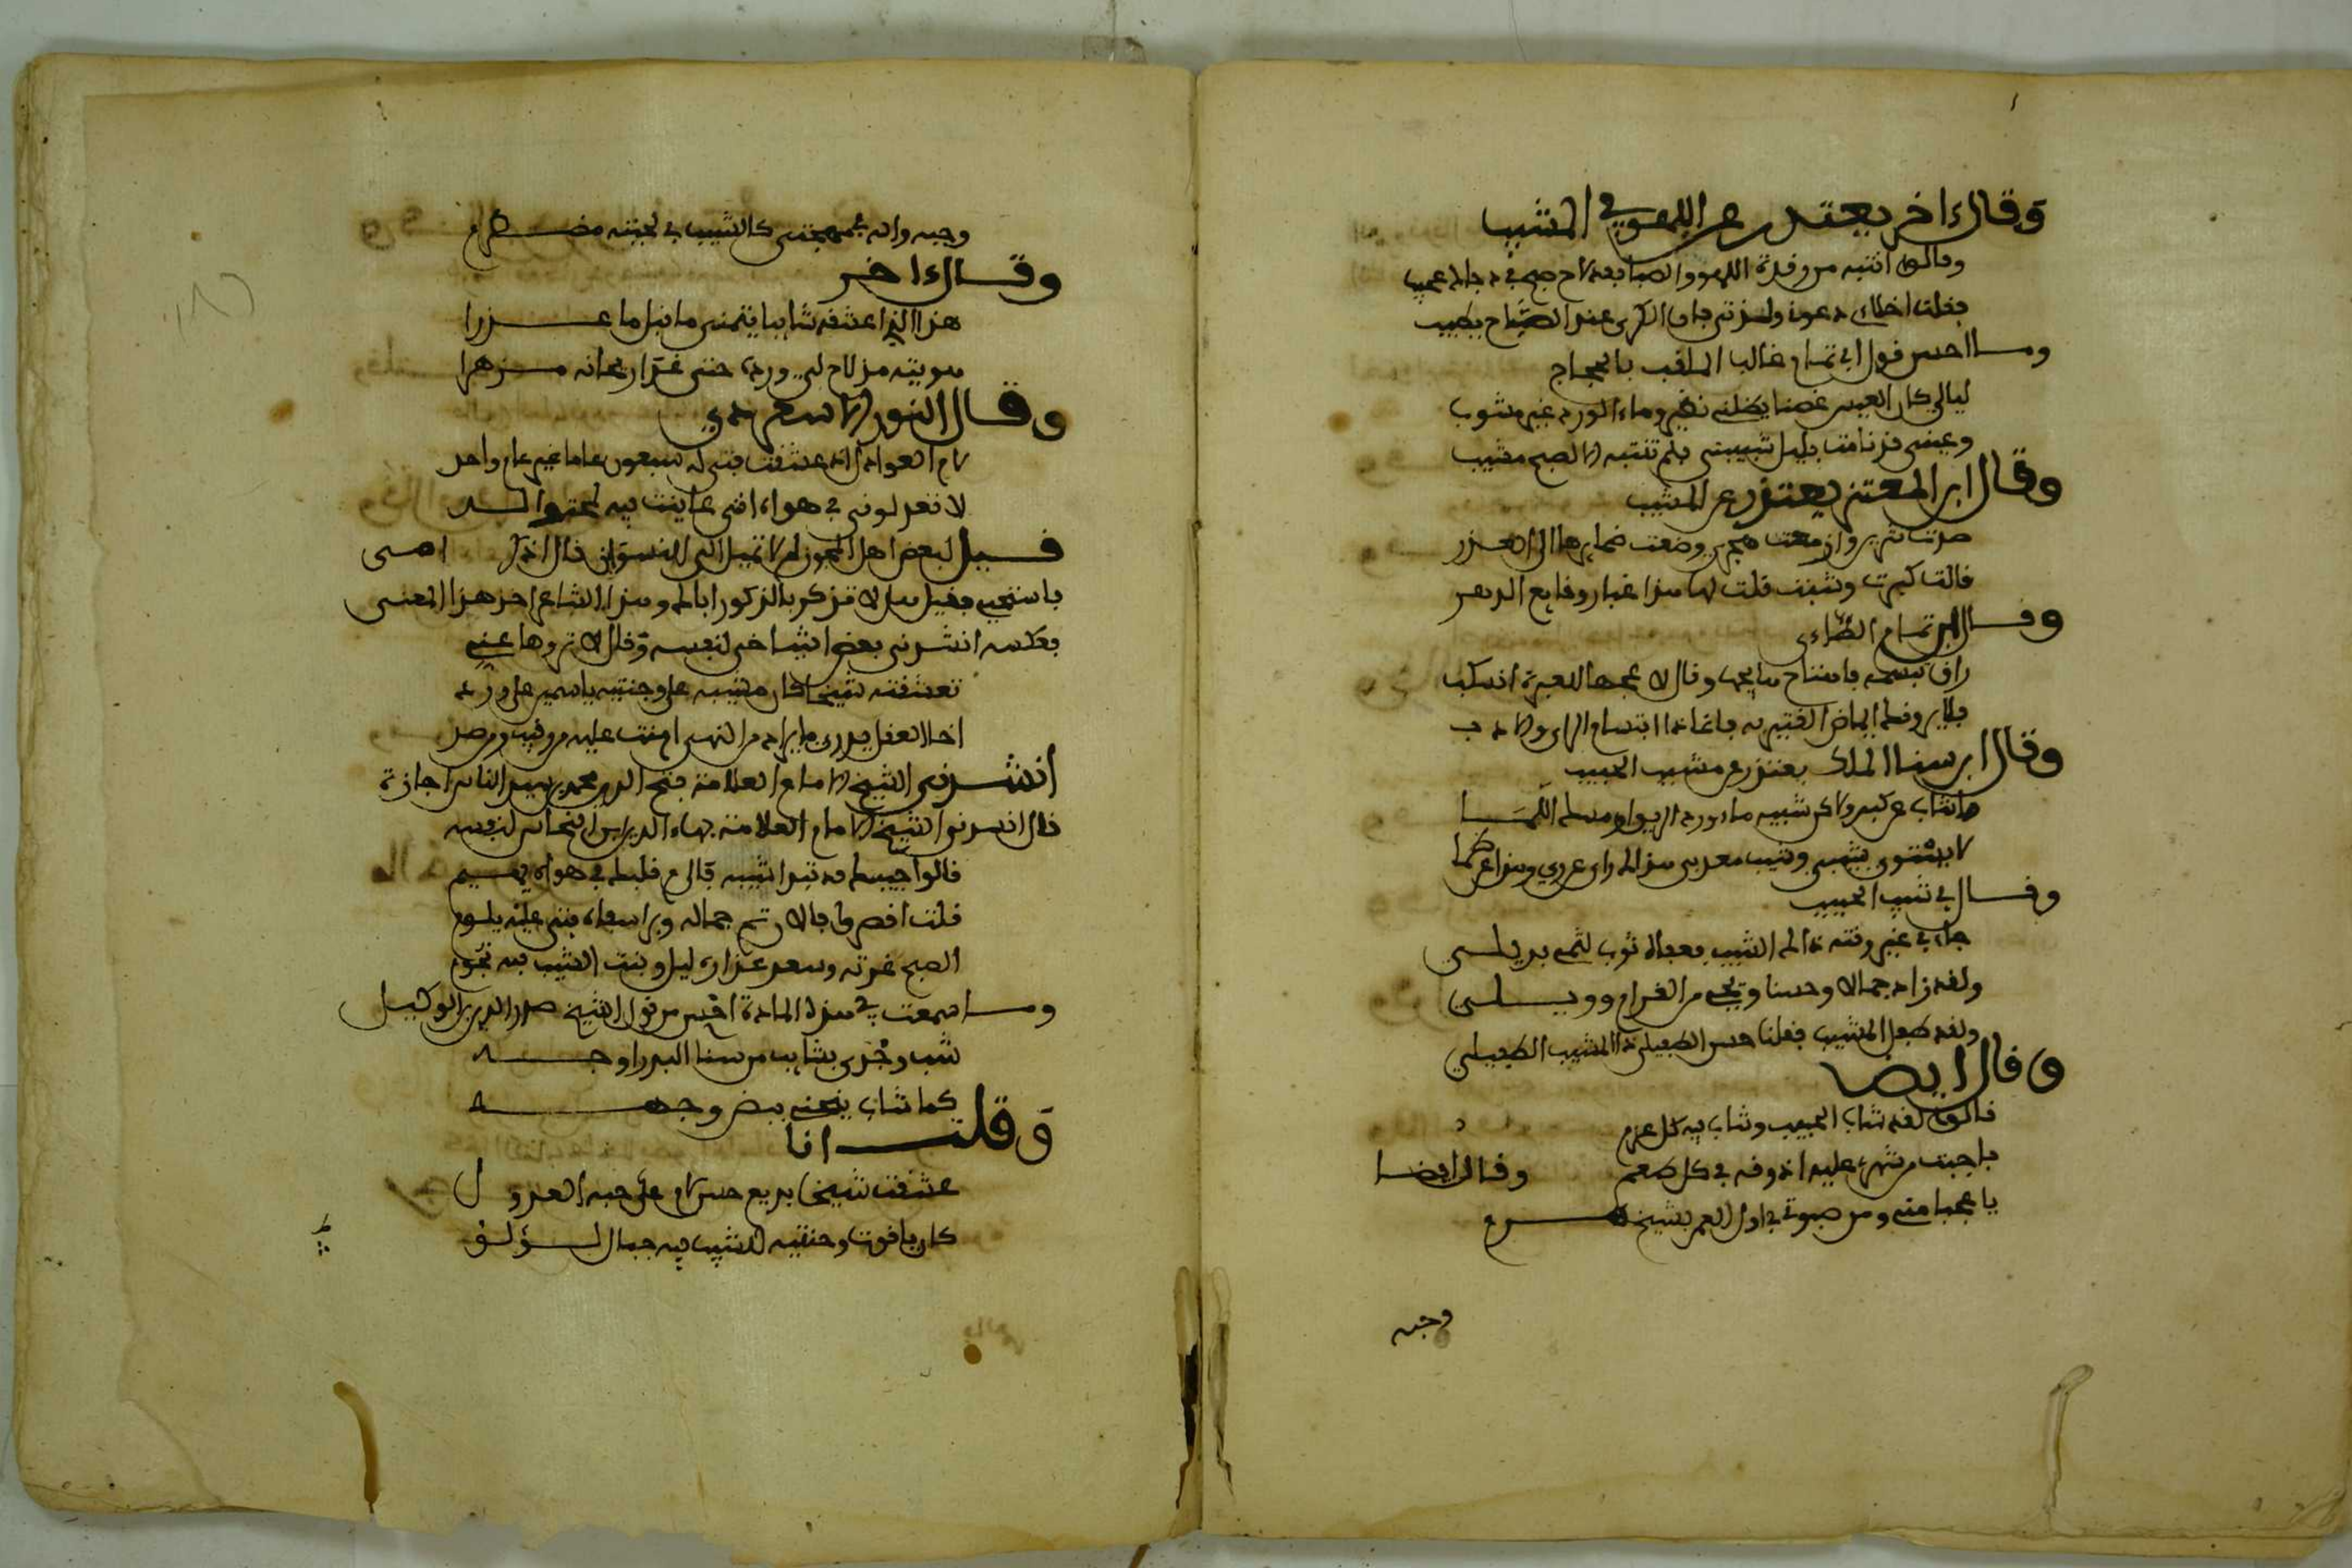 وقال اخر يعتذر عن اللهو في المشيب
وقالوا انتبه من رقدة اللهو والصبا فقد لاح صبح في دجاك عجيب
فقلت اخلاي دعوني ولذتي فان الكرى عند الصباح يطيب
وما احسن قول ابي تمام غالب الملقب بالحجاج
ليالي كان العيش غصنا يظلني نضير وماء الورد غير مشوب
وعيني قد نامت بليل شبيبتي فلم تنتبه الا لصبح مشيب
وقال ابن المعتز يعتذر عن المشيب
صدت شرير وازمعت هجري وصغت ضمايرها الى الغدر
قالت كبرت وشبت قلت لها هذا غبار وقايع الدهر
وقال ابو تمام الطاءي
فلا يروعك ايماض القتير به فان ذا ابتسام الراي والادب
وقال ابن سنا الملك يعتذر عن مشيب الحبيب
ما شاب عن كبر ولاكن شيبه ماء ورد الريق او مسك اللمى
لا يستوي شيبي وشيب معذبي هذاك راى عن روي وهذا عن ظما
وقال في شيب الحبيب
جاء في غير وقته ذالك الشيب
ولقد زاده جمالا وحسنا ويحي من الغرام وويلي
ولقد طفل المشيب فقلنا حسن الطفيلي ذا المشيب الطفيلي
وقال ايضا
قالوا لقد شاب الحبيب وشاب فيه كل عزم
فاجبت من شرهي عليه اذوقه في كل طعم وقال ايضا
يا عجبا مني ومن صبوتي في اول العمر بشيخ هرم
وجه
وجه وان مهجتي كالشيب في لحيته مضطرم
وقال ءاخر
هذا الذي اعشقه شايبا يتمنى ما قبل ما عذرا
هويته مذ لاح لي ورده حتى غدا ريحانه مزهرا
وقال النور الاسعردي
لام العواذل ان عشقت فتى له سبعون عاما غير عام واحد
لا تعذلوني في هواه انني عاينت فيه لحية والد
قيل لبعض اهل المجون لم لا تميل الى النسوان قال اذكر امي
فاستحيي فقيل له لا تذكر بالذكور اباك وهذا الشاعر اخذ هذا المعنى
فعكسه انشدني بعض اشياخي لنفسه وقال لا تروها عني
تعشقته شيخا كان مشيبه على وجنتيه ياسمين على ورد
اخا العقل يدري ما يراد من النهى امنت عليه من رقيب ومن ضد
انشدني الشيخ الامام العلامة فتح الدين محمد بن سيد الناس اجازة
قال انشدني الشيخ الامام العلامة بهاء الدين ابن النحاس لنفسه
قالوا حبيبك قد تبدا شيبه فالى م قلبك في هواه يهيم
قلت اقصروا فالان تم جماله وبدا سفاه فتى عليه يلوم
الصبح غرته وشعر عذاره ليل ونبت الشيب فيه نجوم
وما سمعت في هذه المادة احسن من قول الشيخ صدر الدين ابن الوكيل
شب وجدي بشايب من سنا البدر اوجه
كلما شاب ينحني بيض وجهه
وقلت انا
عشقت شيخا بديع حسن لام على حبه العذول
كان ياقوت وجنتيه للشيب فيه جمال لؤلؤ